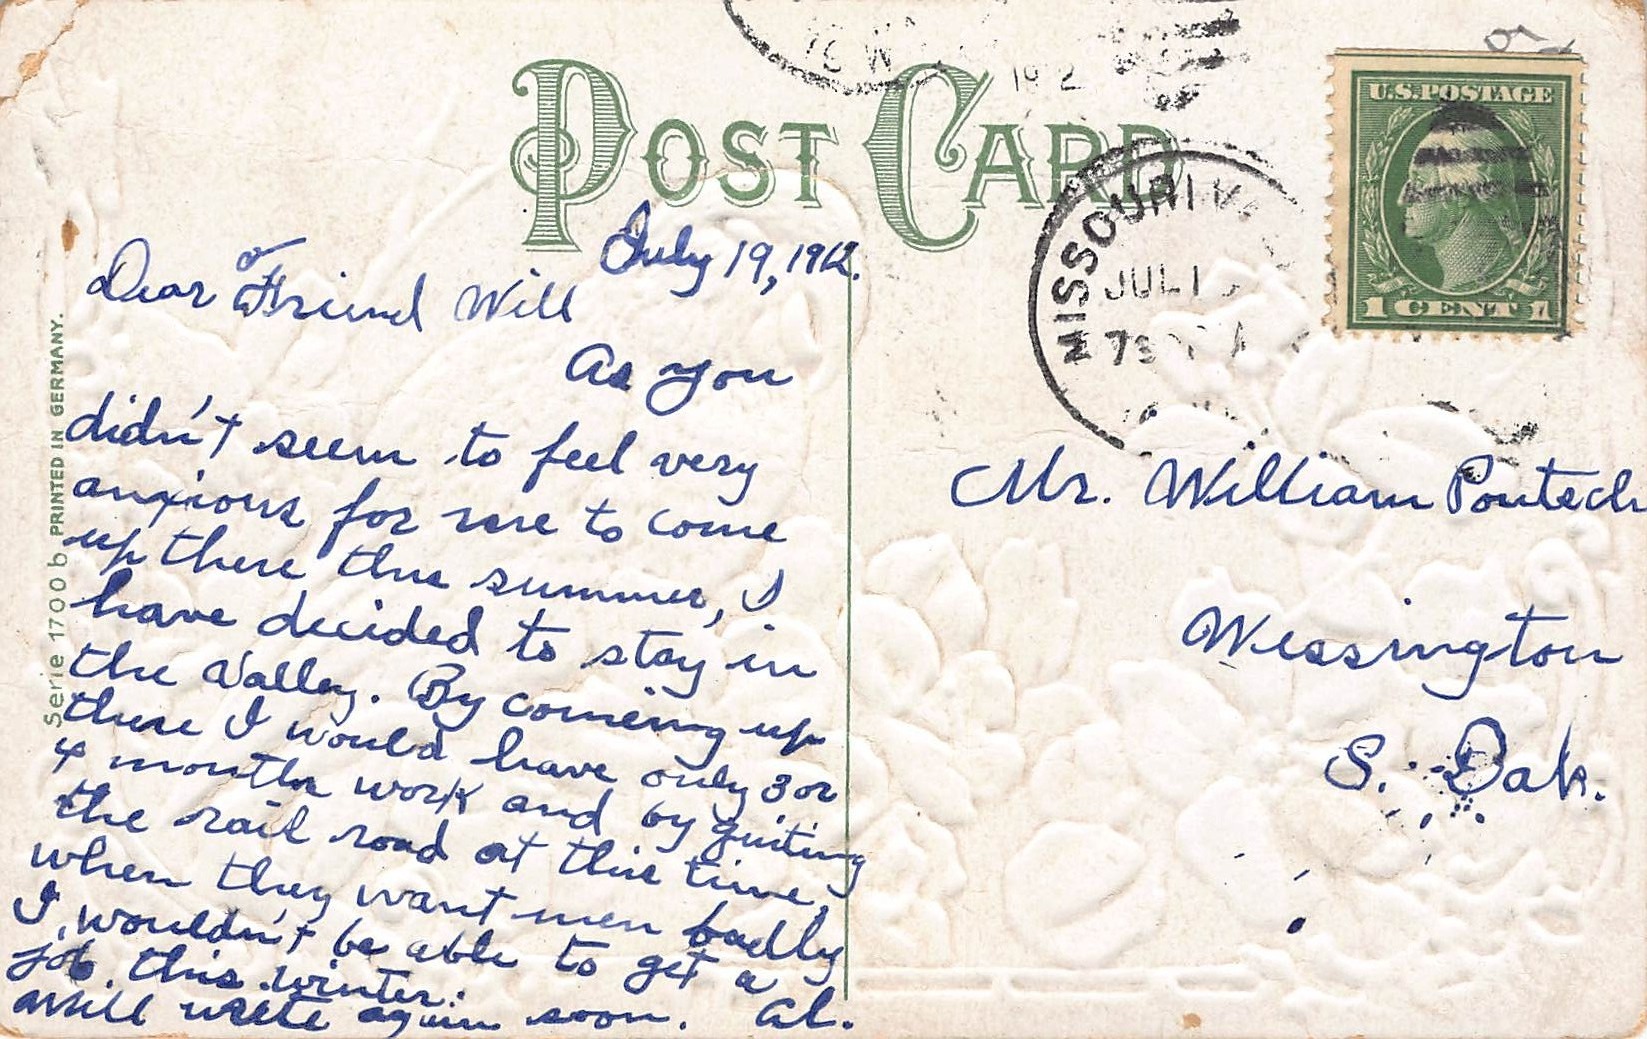 POST CARD
U.S. POSTAGE
1 CENT 1
MISSOURI V
JUL 1
192
Serie 1700 b PRINTED IN GERMANY.
July 19, 1912.
Dear Friend Will
As you
didn't seem to feel very
anxious for me to come
up there this summer, I
have decided to stay in
the Valley. By comeing up
there I would have only 3 or
4 months work and by quiting
the rail road at this time,
when they want men badly
I, wouldn't be able to get a
job this winter.
Will write again soon. Al.
Mr. William
Wessington
S. Dak.